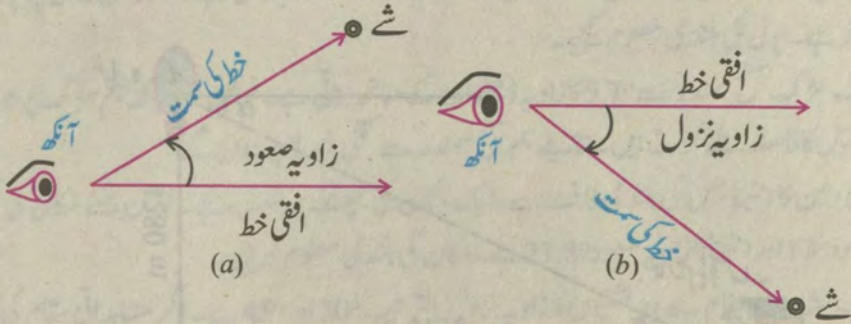 شے
خط کی سمت
آنکھ
زاویہ صعود
افقی خط
(a)
افقی خط
زاویہ نزول
آنکھ
خط کی سمت
(b)
شے